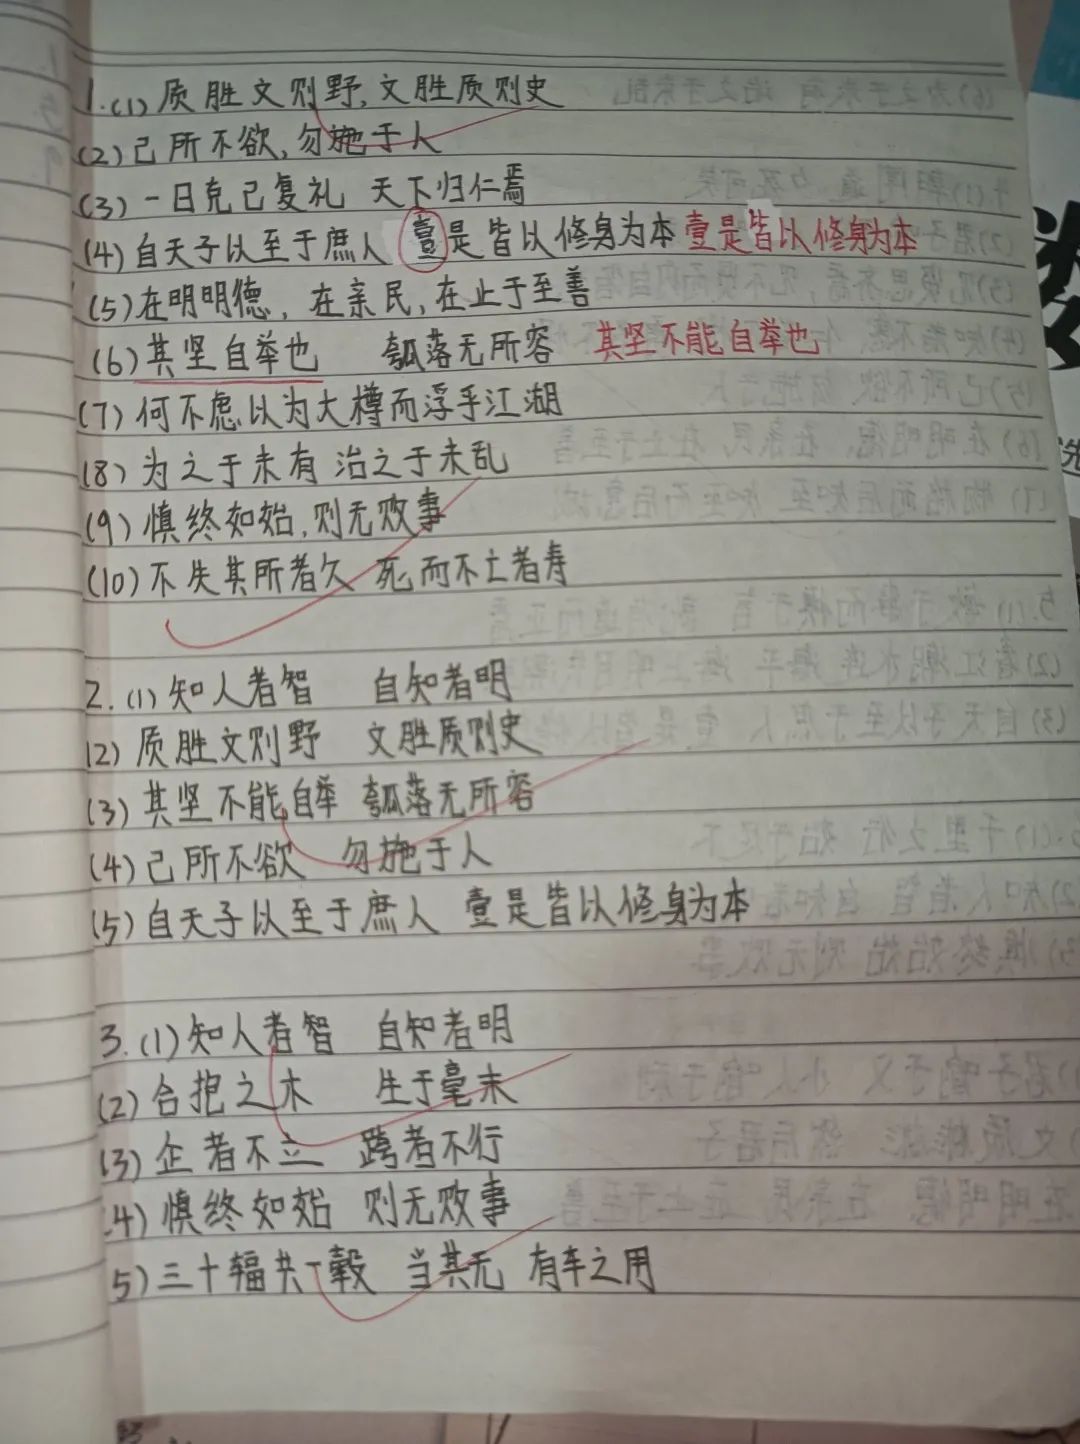 1.(1)质胜文则野,文胜质则史
(2)己所不欲,勿施于人
(3)一日克己复礼 天下归仁焉
(4)自天子以至于庶人 壹是皆以修身为本 壹是皆以修身为本
(5)在明明德, 在亲民,在止于至善
(6)其坚自举也 瓠落无所容 其坚不能自举也
(7)何不虑以为大樽而浮乎江湖
(8)为之于未有 治之于未乱
(9)慎终如始,则无败事
(10)不失其所者久 死而不亡者寿
2.(1)知人者智 自知者明
(2)质胜文则野 文胜质则史
(3)其坚不能自举 瓠落无所容
(4)己所不欲 勿施于人
(5)自天子以至于庶人 壹是皆以修身为本
3.(1)知人者智 自知者明
(2)合抱之木 生于毫末
(3)企者不立 跨者不行
(4)慎终如始 则无败事
5)三十辐共一毂 当其无 有车之用